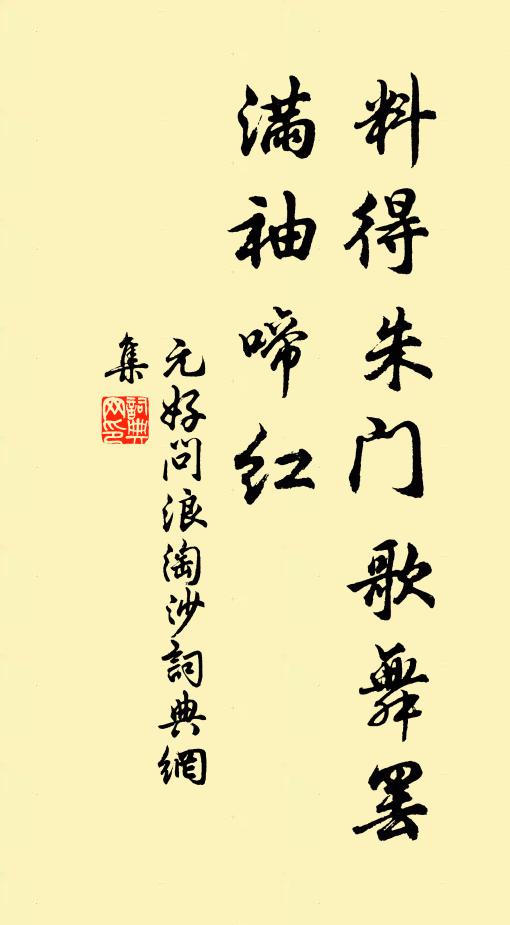 料得朱门歌舞罢
满袖啼红
元好问浪淘沙詞典網
集
詞典
网印